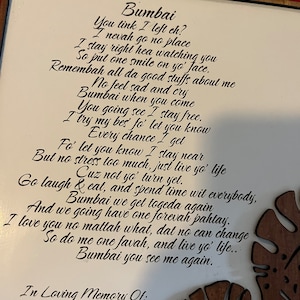 Bumbai
You tink I left eh?
I nevah go no place
I stay right hea watching you
So put one smile on yo' face.
Remembah all da good stuffs about me
No feel sad and cry
Bumbai when you come
You going see I stay free.
I try my bes' fo' let you know
Every chance I get
Fo' let you know I stay near
But no stress too much, just live yo' life
Cus not yo' turn yet.
Go laugh & eat, and spend time wit everybody.
Bumbai we get togeda again
And we going have one forevah pahtay.
I love you no mattah what, dat no can change
So do me one favah, and live yo' life..
Bumbai you see me again.
In Loving Memory Of: